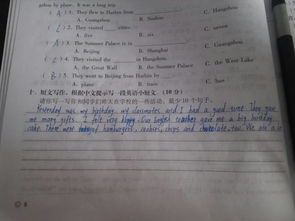 place by plane. It was a long trip.
( A ) 1. They flew to Harbin from
A. Guangzhou B. Suzhou C. Hangzhou
( C ) 2. They visited cities.
A. five B. six C. seven
( A ) 3. The Summer Palace is in
A. Beijing B. Shanghai C. Guangzhou
( C ) 4. They visited the in Hangzhou.
A. the Great Wall B. the Summer Palace C. the West Lake
( B ) 5. They went to Beijing from Harbin by
A. plane B. train C. bus
十、短文写作。根据中文提示写一段英语小短文 (10分)
请你写一写你和同学们昨天在学校的一些活动，最少10个句子。
Yesterday was my birthday, my classmates and I had a good time. They gave
me many gifts. I felt very happy. Our English teacher gave me a big birthday
cake. There were of hamburgers, cookies, chips and chocolate, too. We ate a lo
8